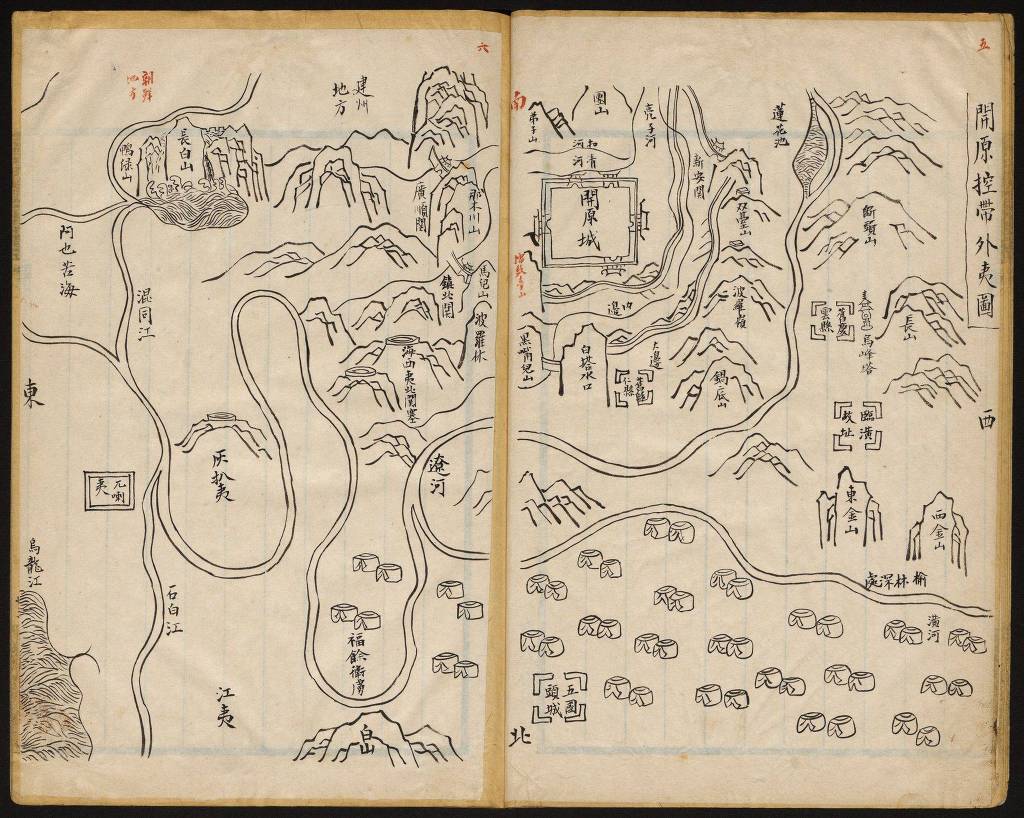 五
開原控帶外夷圖
西
蓮花池
斷頭山
長山
舊慶
雲縣
烏峰塔
臨潢
故址
東金山
西金山
榆林深處
潢河
南
團山
弟子山
亮子河
清河
新安關
開原城
双臺山
波羅嶺
鍋底山
邊
大邊
白塔水口
黑嘴兒山
五國
頭城
北
六
朝鮮
地方
建州
地方
長白山
鴨淥山
廣順關
那木川山
馬兒山
鎮北關
波羅林
海西夷北關寨
遼河
阿也苦海
混同江
東
灰扒夷
兀喇
夷
烏龍江
石白江
江夷
福餘衛夷
白山